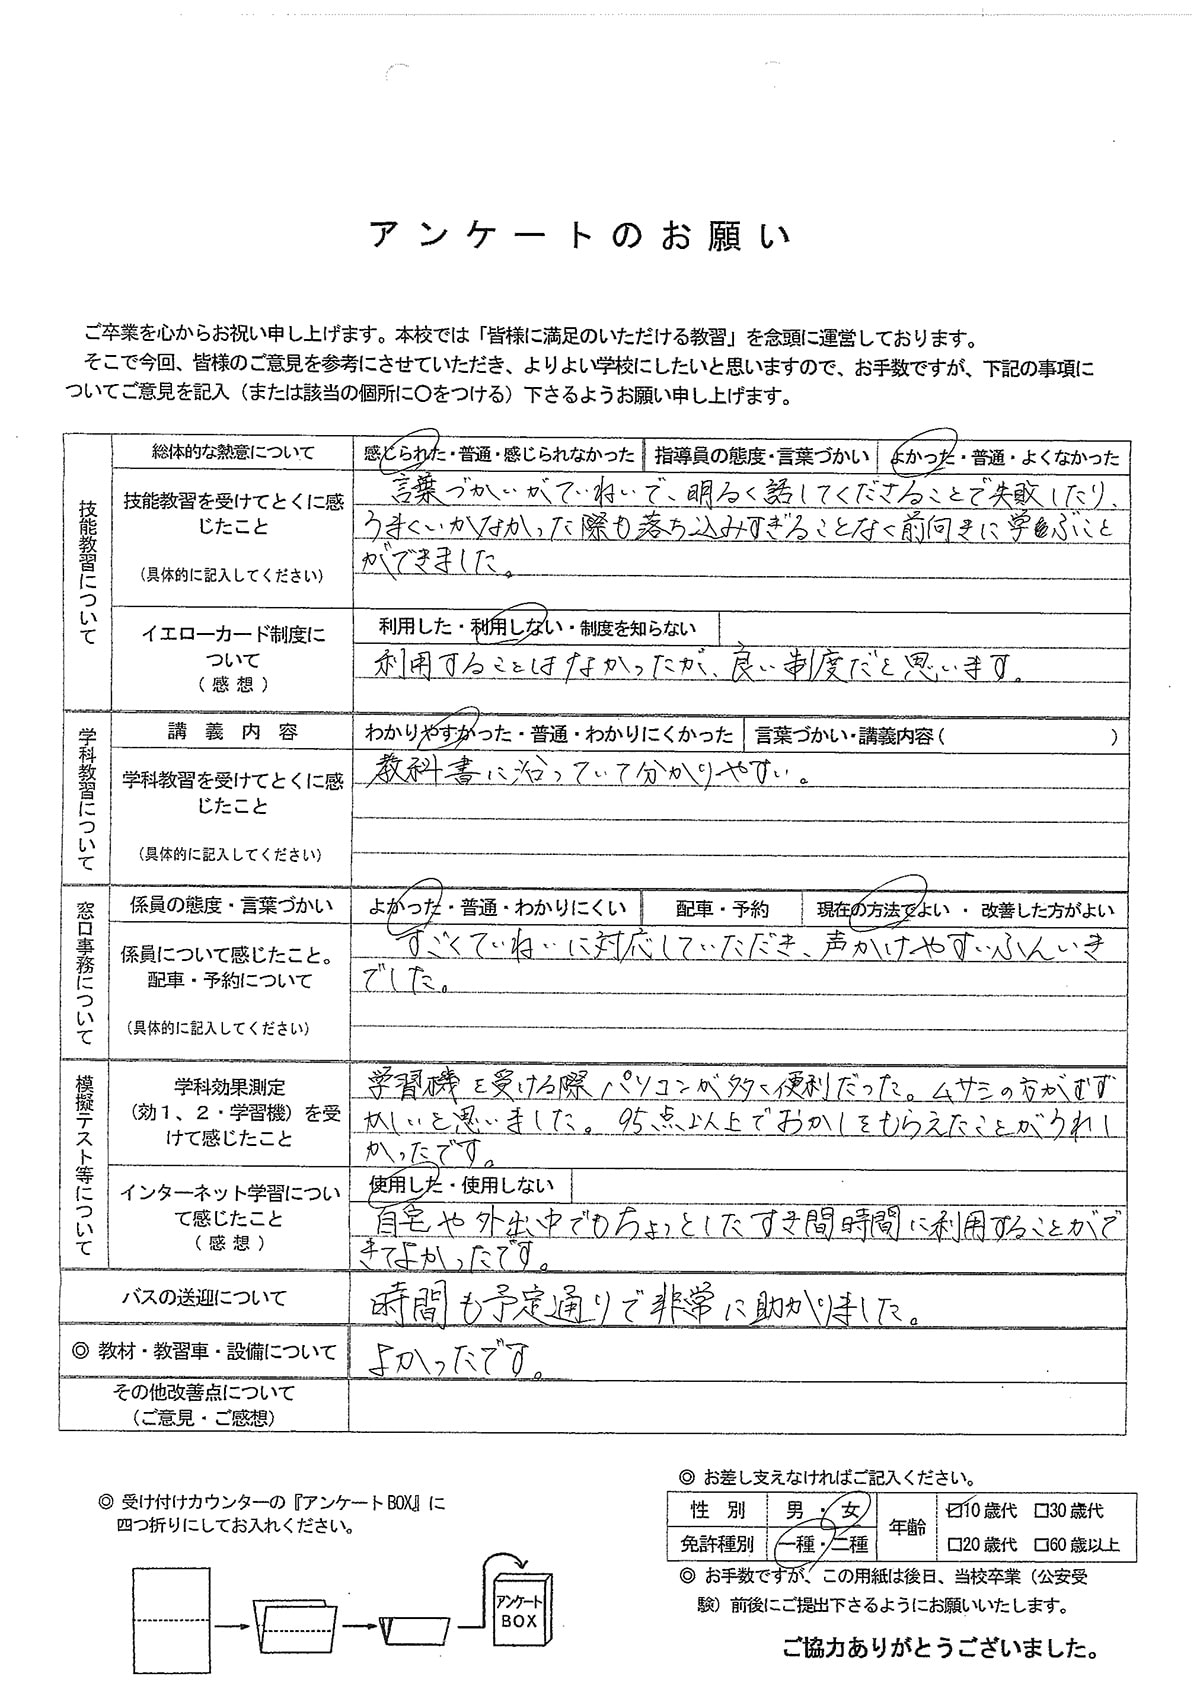 アンケートのお願い
ご卒業を心からお祝い申し上げます。本校では「皆様に満足のいただける教習」を念頭に運営しております。
そこで今回、皆様のご意見を参考にさせていただき、よりよい学校にしたいと思いますので、お手数ですが、下記の事項に
ついてご意見を記入（または該当の個所に〇をつける）下さるようお願い申し上げます。
技能教習について
総体的な熱意について
感じられた・普通・感じられなかった
指導員の態度・言葉づかい
よかった・普通・よくなかった
技能教習を受けてとくに感
じたこと
（具体的に記入してください）
言葉づかいがていねいで、明るく話してくださることで失敗したり、
うまくいかなかった際も落ち込みすぎることなく前向きに学ぶこと
ができました。
イエローカード制度に
ついて
（感想）
利用した・利用しない・制度を知らない
利用することはなかったが、良い制度だと思います。
学科教習について
講義内容
わかりやすかった・普通・わかりにくかった
言葉づかい・講義内容（　）
学科教習を受けてとくに感
じたこと
（具体的に記入してください）
教科書に沿っていて分かりやすい。
窓口事務について
係員の態度・言葉づかい
よかった・普通・わかりにくい
配車・予約
現在の方法でよい ・ 改善した方がよい
係員について感じたこと。
配車・予約について
（具体的に記入してください）
すごくていねいに対応していただき、声かけやすいふんいき
でした。
模擬テスト等について
学科効果測定
（効1、2・学習機）を受
けて感じたこと
学習機を受ける際パソコンが多く便利だった。ムサシの方がむず
かしいと思いました。95点以上でおかしをもらえたことがうれし
かったです。
インターネット学習につい
て感じたこと
（感想）
使用した・使用しない
自宅や外出中でもちょっとしたすき間時間に利用することがで
きてよかったです。
バスの送迎について
時間も予定通りで非常に助かりました。
◎ 教材・教習車・設備について
よかったです。
その他改善点について
（ご意見・ご感想）
◎ 受け付けカウンターの『アンケートBOX』に
四つ折りにしてお入れください。
アンケート
BOX
◎ お差し支えなければご記入ください。
性別
男・女
年齢
☑10歳代 □30歳代
免許種別
一種・二種
□20歳代 □60歳以上
◎ お手数ですが、この用紙は後日、当校卒業（公安受
験）前後にご提出下さるようにお願いいたします。
ご協力ありがとうございました。